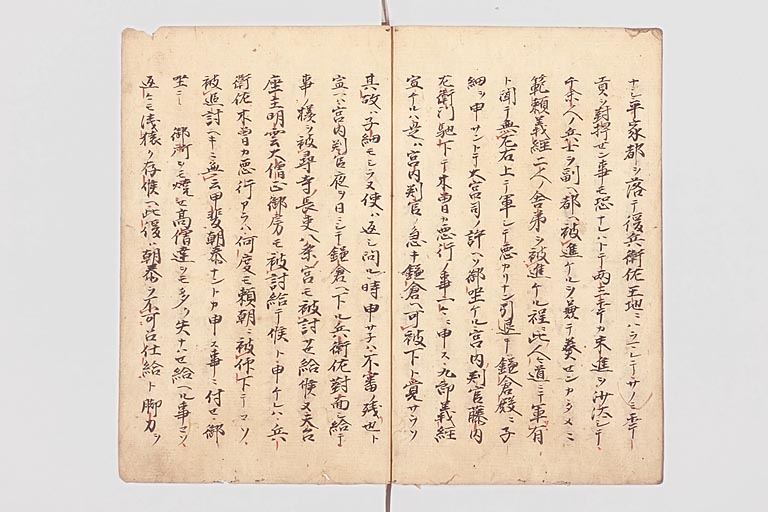 ナシ平家都ヲ落テ後兵衛佐王地ニハラマレテサノミ平家
貢ヲ對捍せン事モ恐ナレハトテ両三年カ未進ヲ沙汰シテ
千余人ノ兵士ヲ副ヘ都ヘ被進ケル
範頼義経二人ノ舎弟ヲ被進ケル程ニ此人々道ニテ軍有
ト聞テ無左右上テ軍シテ悪カリナン引退テ鎌倉殿ニ子
細ヲ申サントテ大宮司ノ許ハソ御坐ケル宮内判官藤内
左衛門馳下テ木曽カ悪行ノ事一々ニ申ス九郎義経
宣ケルハ是ハ宮内判官ノ急キ鎌倉ヘ可被下ト覚サラン
其故ハ子細モシラヌ使ハ返シ問ルヽ時申サネハ不審ノ残也ト
宣ヘハ宮内判官夜ヲ日ニシテ鎌倉ヘ下ル兵衛佐對面シ給テ
事ノ様ヲ被尋寺長吏八条宮モ被討サせ給候又天台
座主明雲大僧正御房モ被討給テ候ト申ケレハ兵
衛佐木曽カ悪行アラハ何度モ頼朝ニ被仰下テコソ
被追討ヘキニ無云甲斐朝泰ナントカ申ス事ニ付せ御
坐シ 御所ヲモ焼せ高僧達ヲモ多ク失ナハせ給ヘル事コソ
返々モ浅猿ク存候ヘ此後ハ朝泰ヲ不可召仕給ト脚力ヲ